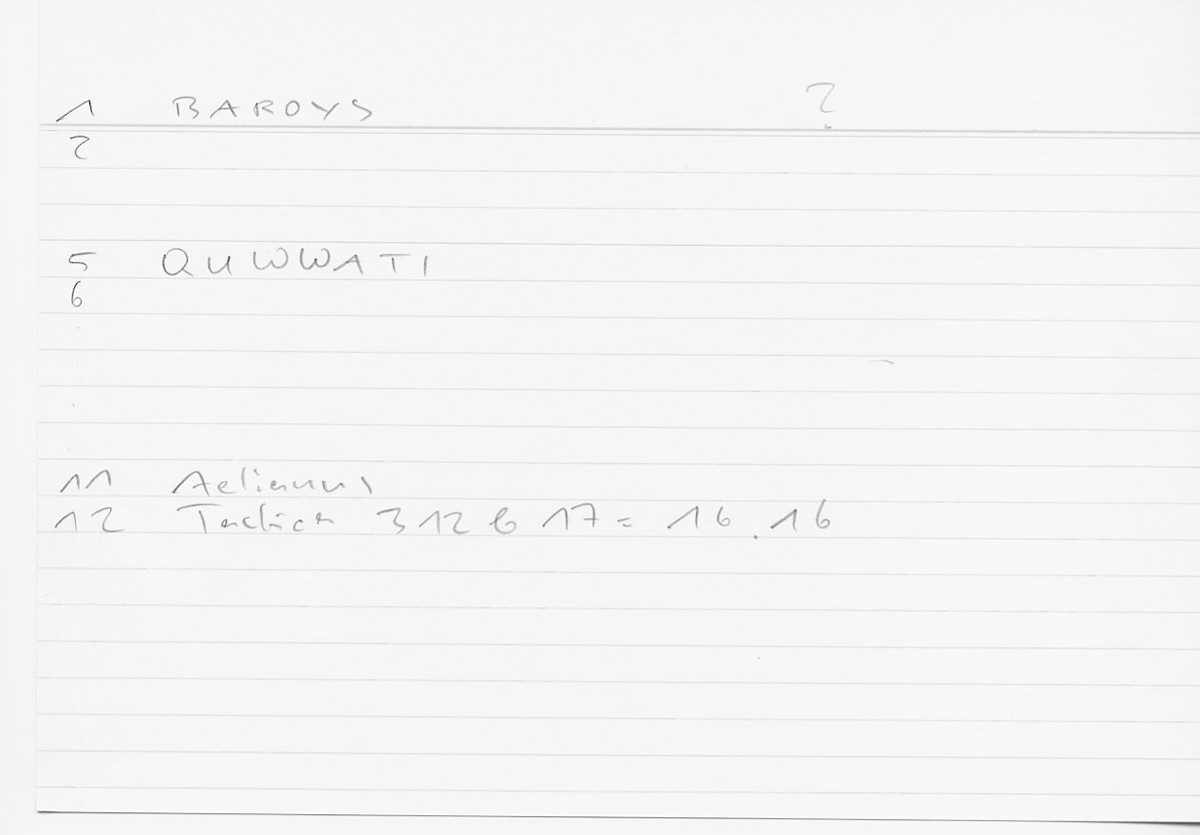 1 BAROYS ?
2
5 QUWWATI
6
11 Aelianus
12 Tactica 312 b 17 = 16.16